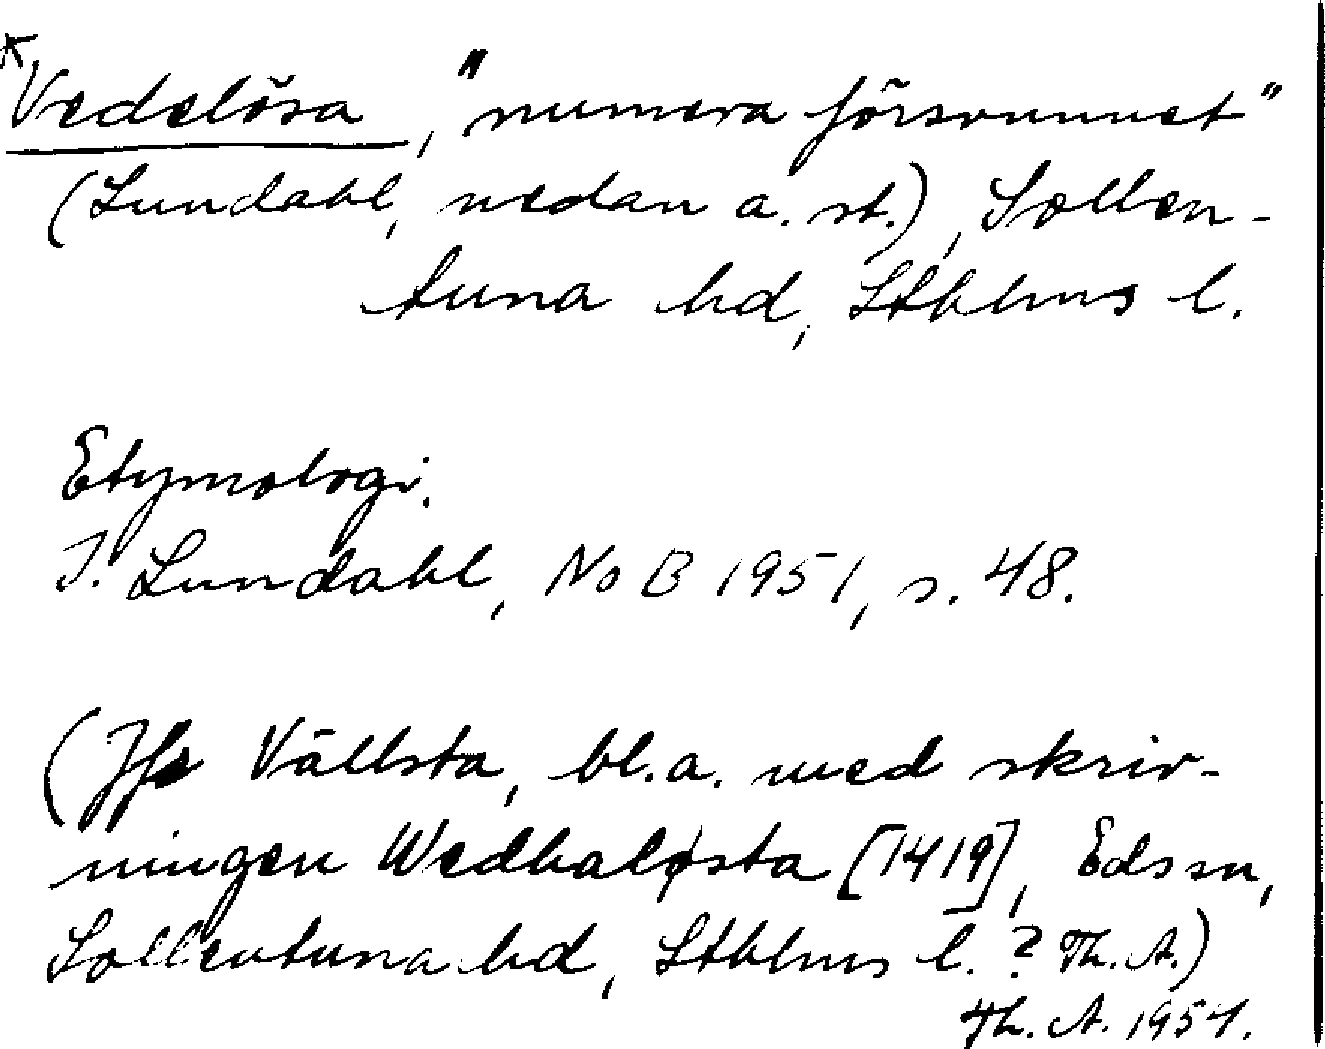 *Vedelösa, "numera försvunnet"
(Lundahl, nedan a. st.), Sollen-
tuna hd, Sthlms l.
Etymologi.
I. Lundahl, NoB 1951, s. 48.
(Jfr Vällsta, bl.a. med skriv-
ningen Wedhaløsta [1419], Eds sn,
Sollentuna hd, Sthlms l. ? Th. A.)
Th. A. 1954.